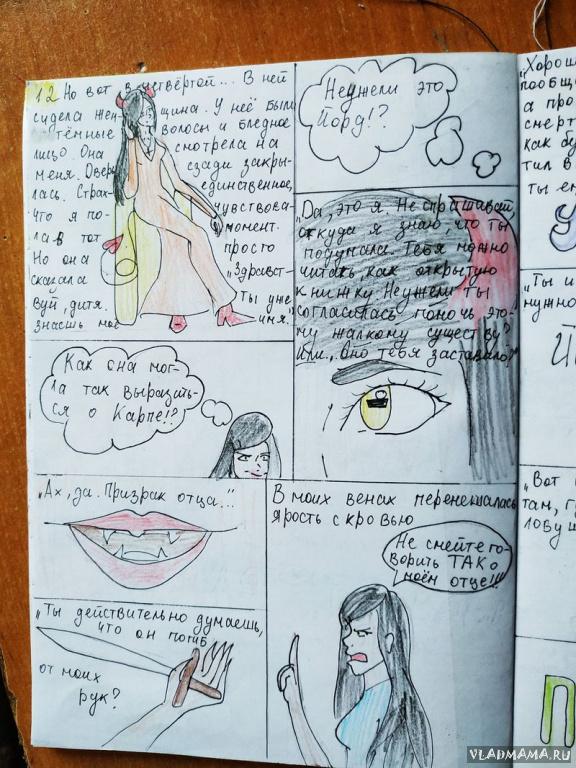 12 Но вот в четвёртой... В ней
сидела жен щина. У неё были
тёмные волосы и бледное
лицо. Она смотрела на
меня. сзади закры-
лась. Страх- единственное,
что я по чувствова-
ла в тот момент.
Но она просто
сказала „Здравст-
вуй, дитя. Ты уже
знаешь моё имя."
Неужели это
Йорд!?
„Да, это я. Не спрашивай,
откуда я знаю, что ты
подумала. Тебя можно
читать как открытую
книжку. Неужели ты
согласилась помочь это-
му жалкому существу?
Или, оно тебя заставило?"
Как она мог-
ла так выразить-
ся о Карпе!?
„Ах, да. Призрак отца..."
В моих венах перемешалась
ярость с кровью
Не смейте го-
ворить ТАК о
моём отце!!!
„Ты действительно думаешь,
что он погиб
от моих
рук?
„Хорош
пообщ
а про
смерт
как бу
тил в
ты е
„Ты и
нужно
„Вот
там, г
ловуш
П
VLADMAMA.RU